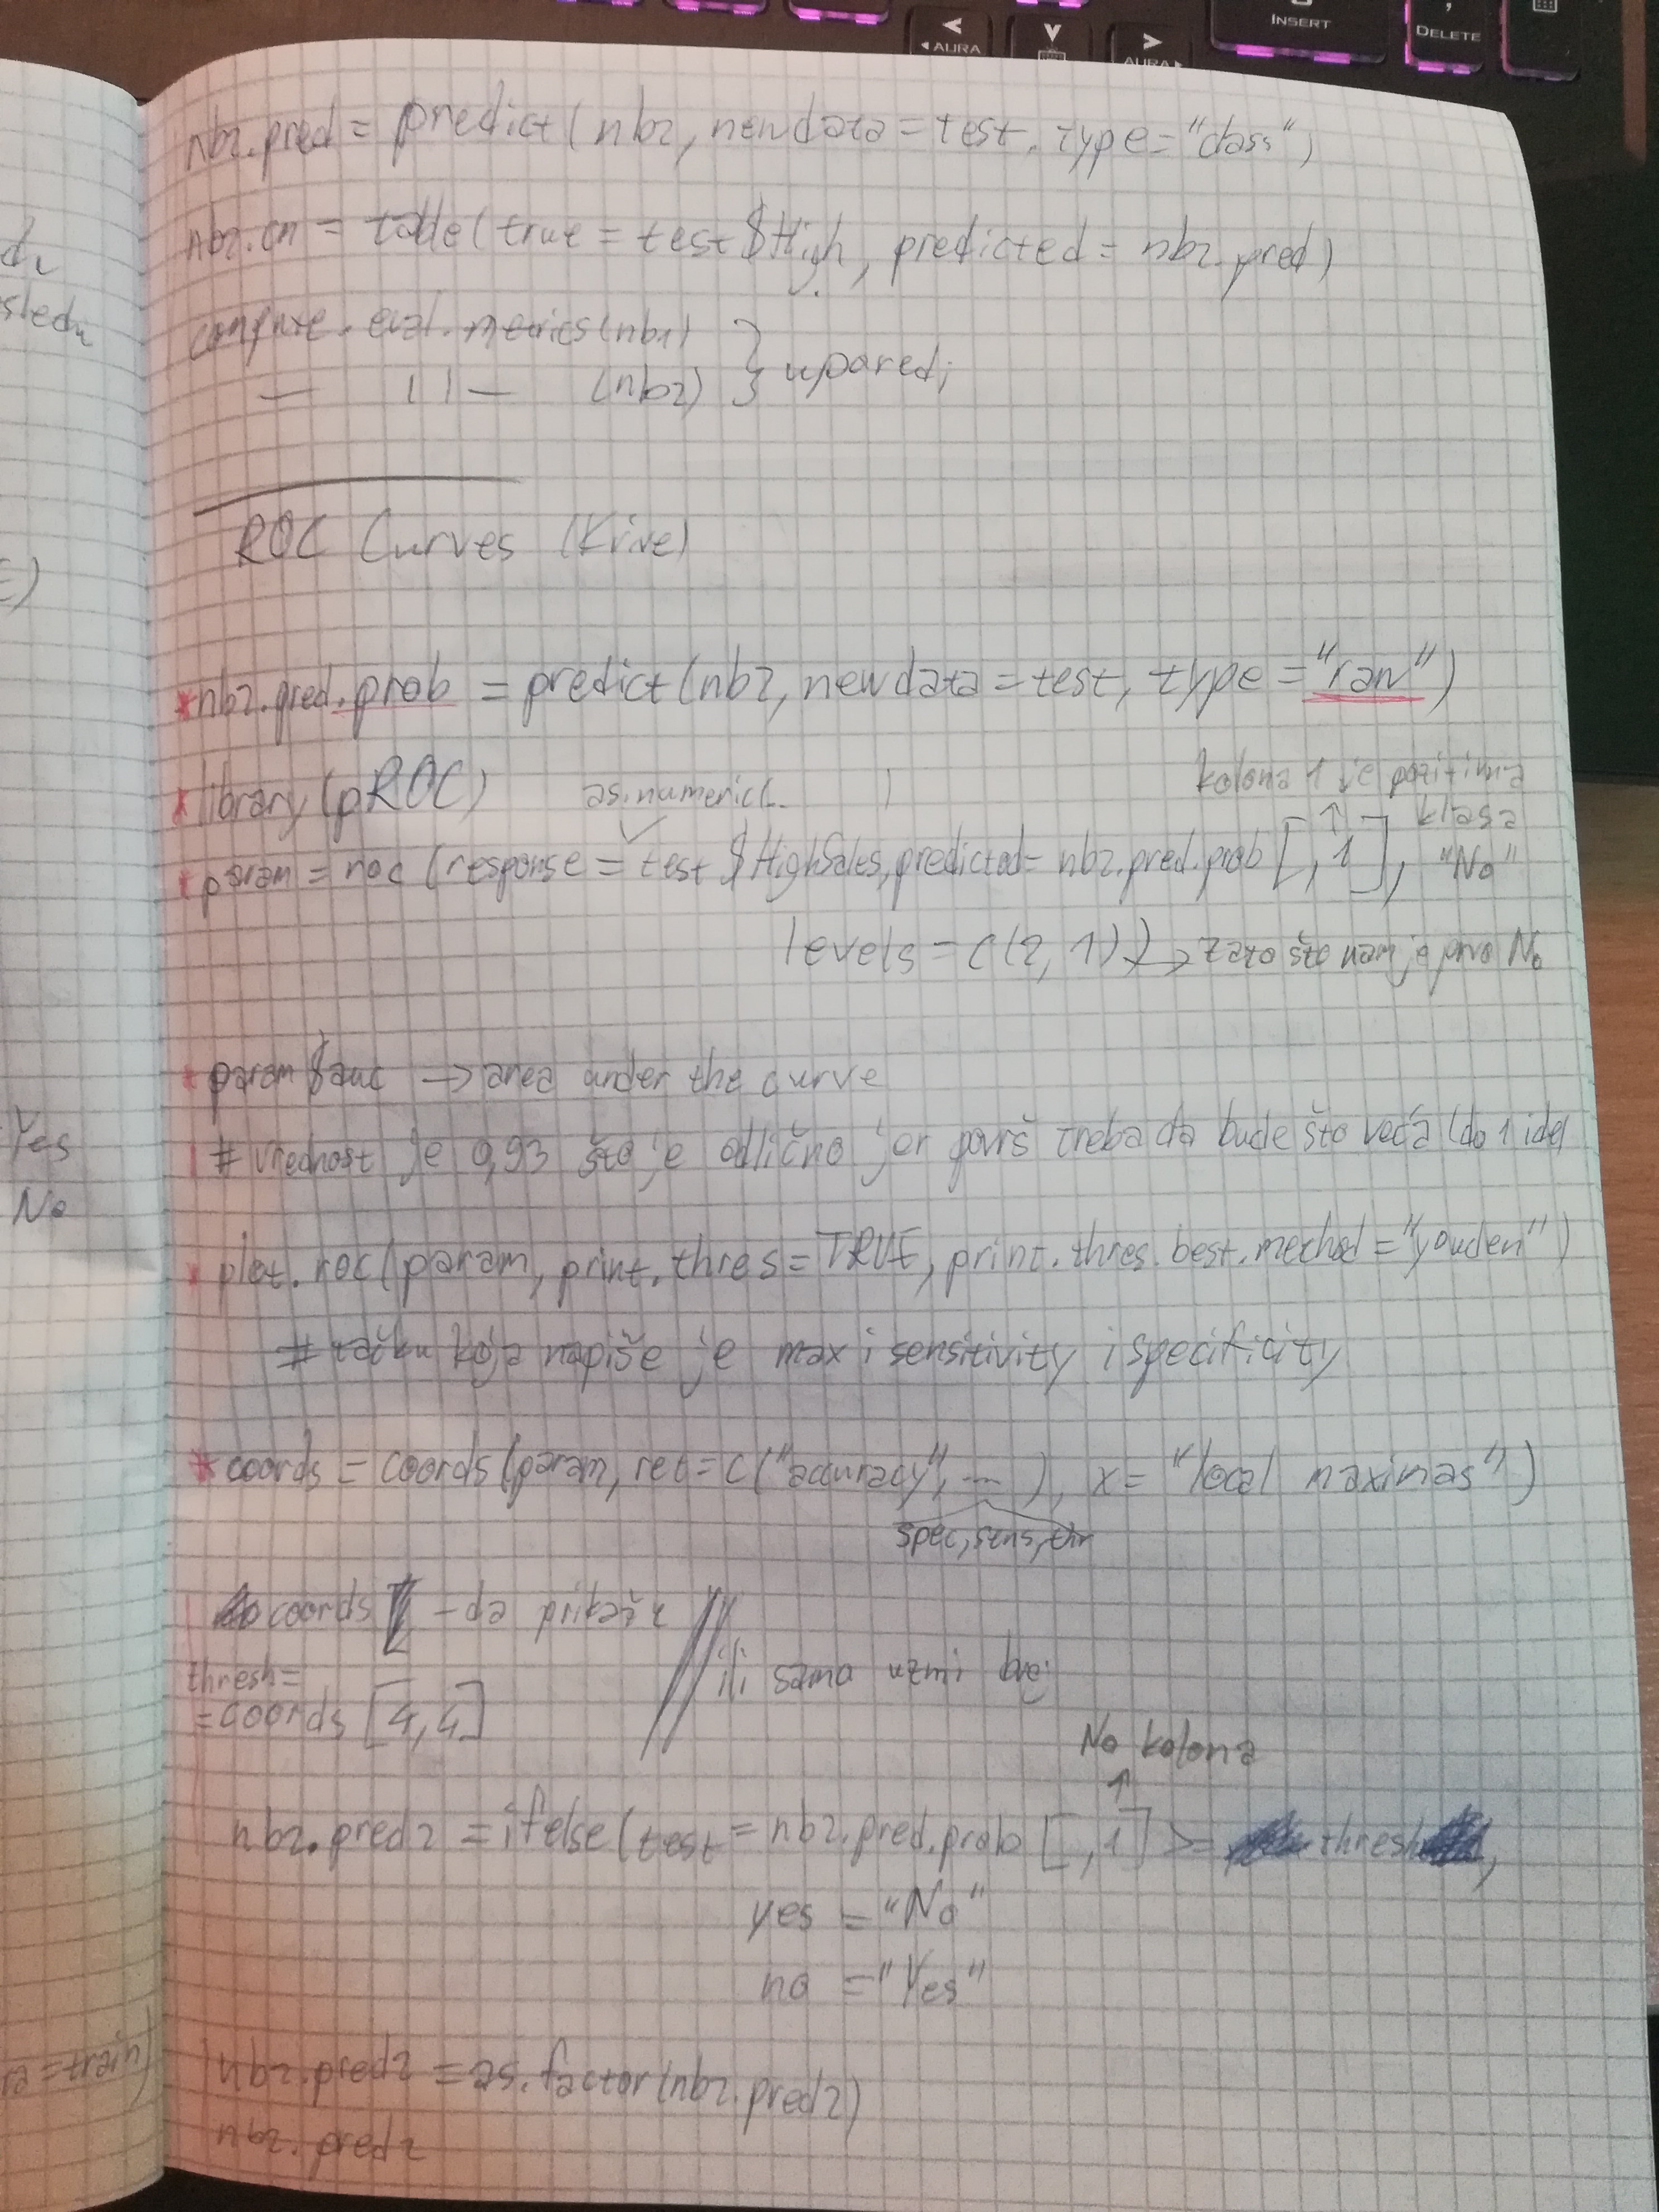 INSERT
DELETE
AURA
AURA
nb2.pred = predict(nb2, newdata = test, type = "class")
nb2.cm = table(true = test$High, predicted = nb2.pred)
compute.eval.metrics(nb1)
— 11 — (nb2) } uporedi
ROC Curves (Krive)
* nb2.pred.prob = predict(nb2, newdata = test, type = "raw")
* library(pROC) as.numeric(_ ) kolona 1 je pozitivna
klasa
* param = roc (response = test $HighSales, predicted = nb2.pred.prob [ , 1 ] , "No"
levels = c(2, 1)) → zato što nam je prvo No
* param $auc → area under the curve
# vrednost je 0,93 što je odlično jer površ treba da bude što veća (do 1 ide)
* plot.roc(param, print.thres = TRUE, print.thres.best.method = "youden")
# tačku koja napiše je max i sensitivity i specificity
* coords = coords(param, ret = c("accuracy", ... ), x = "local maximas")
spec, sens, thr
coords – da prikaže
thresh =
= coords [4,4]
ili samo uzmi
No kolona
nb2.pred2 = ifelse(test = nb2.pred.prob [ ,1] >= thresh,
yes = "No"
no = "Yes"
nb2.pred2 = as.factor(nb2.pred2)
nb2.pred2
Yes
No
= train)